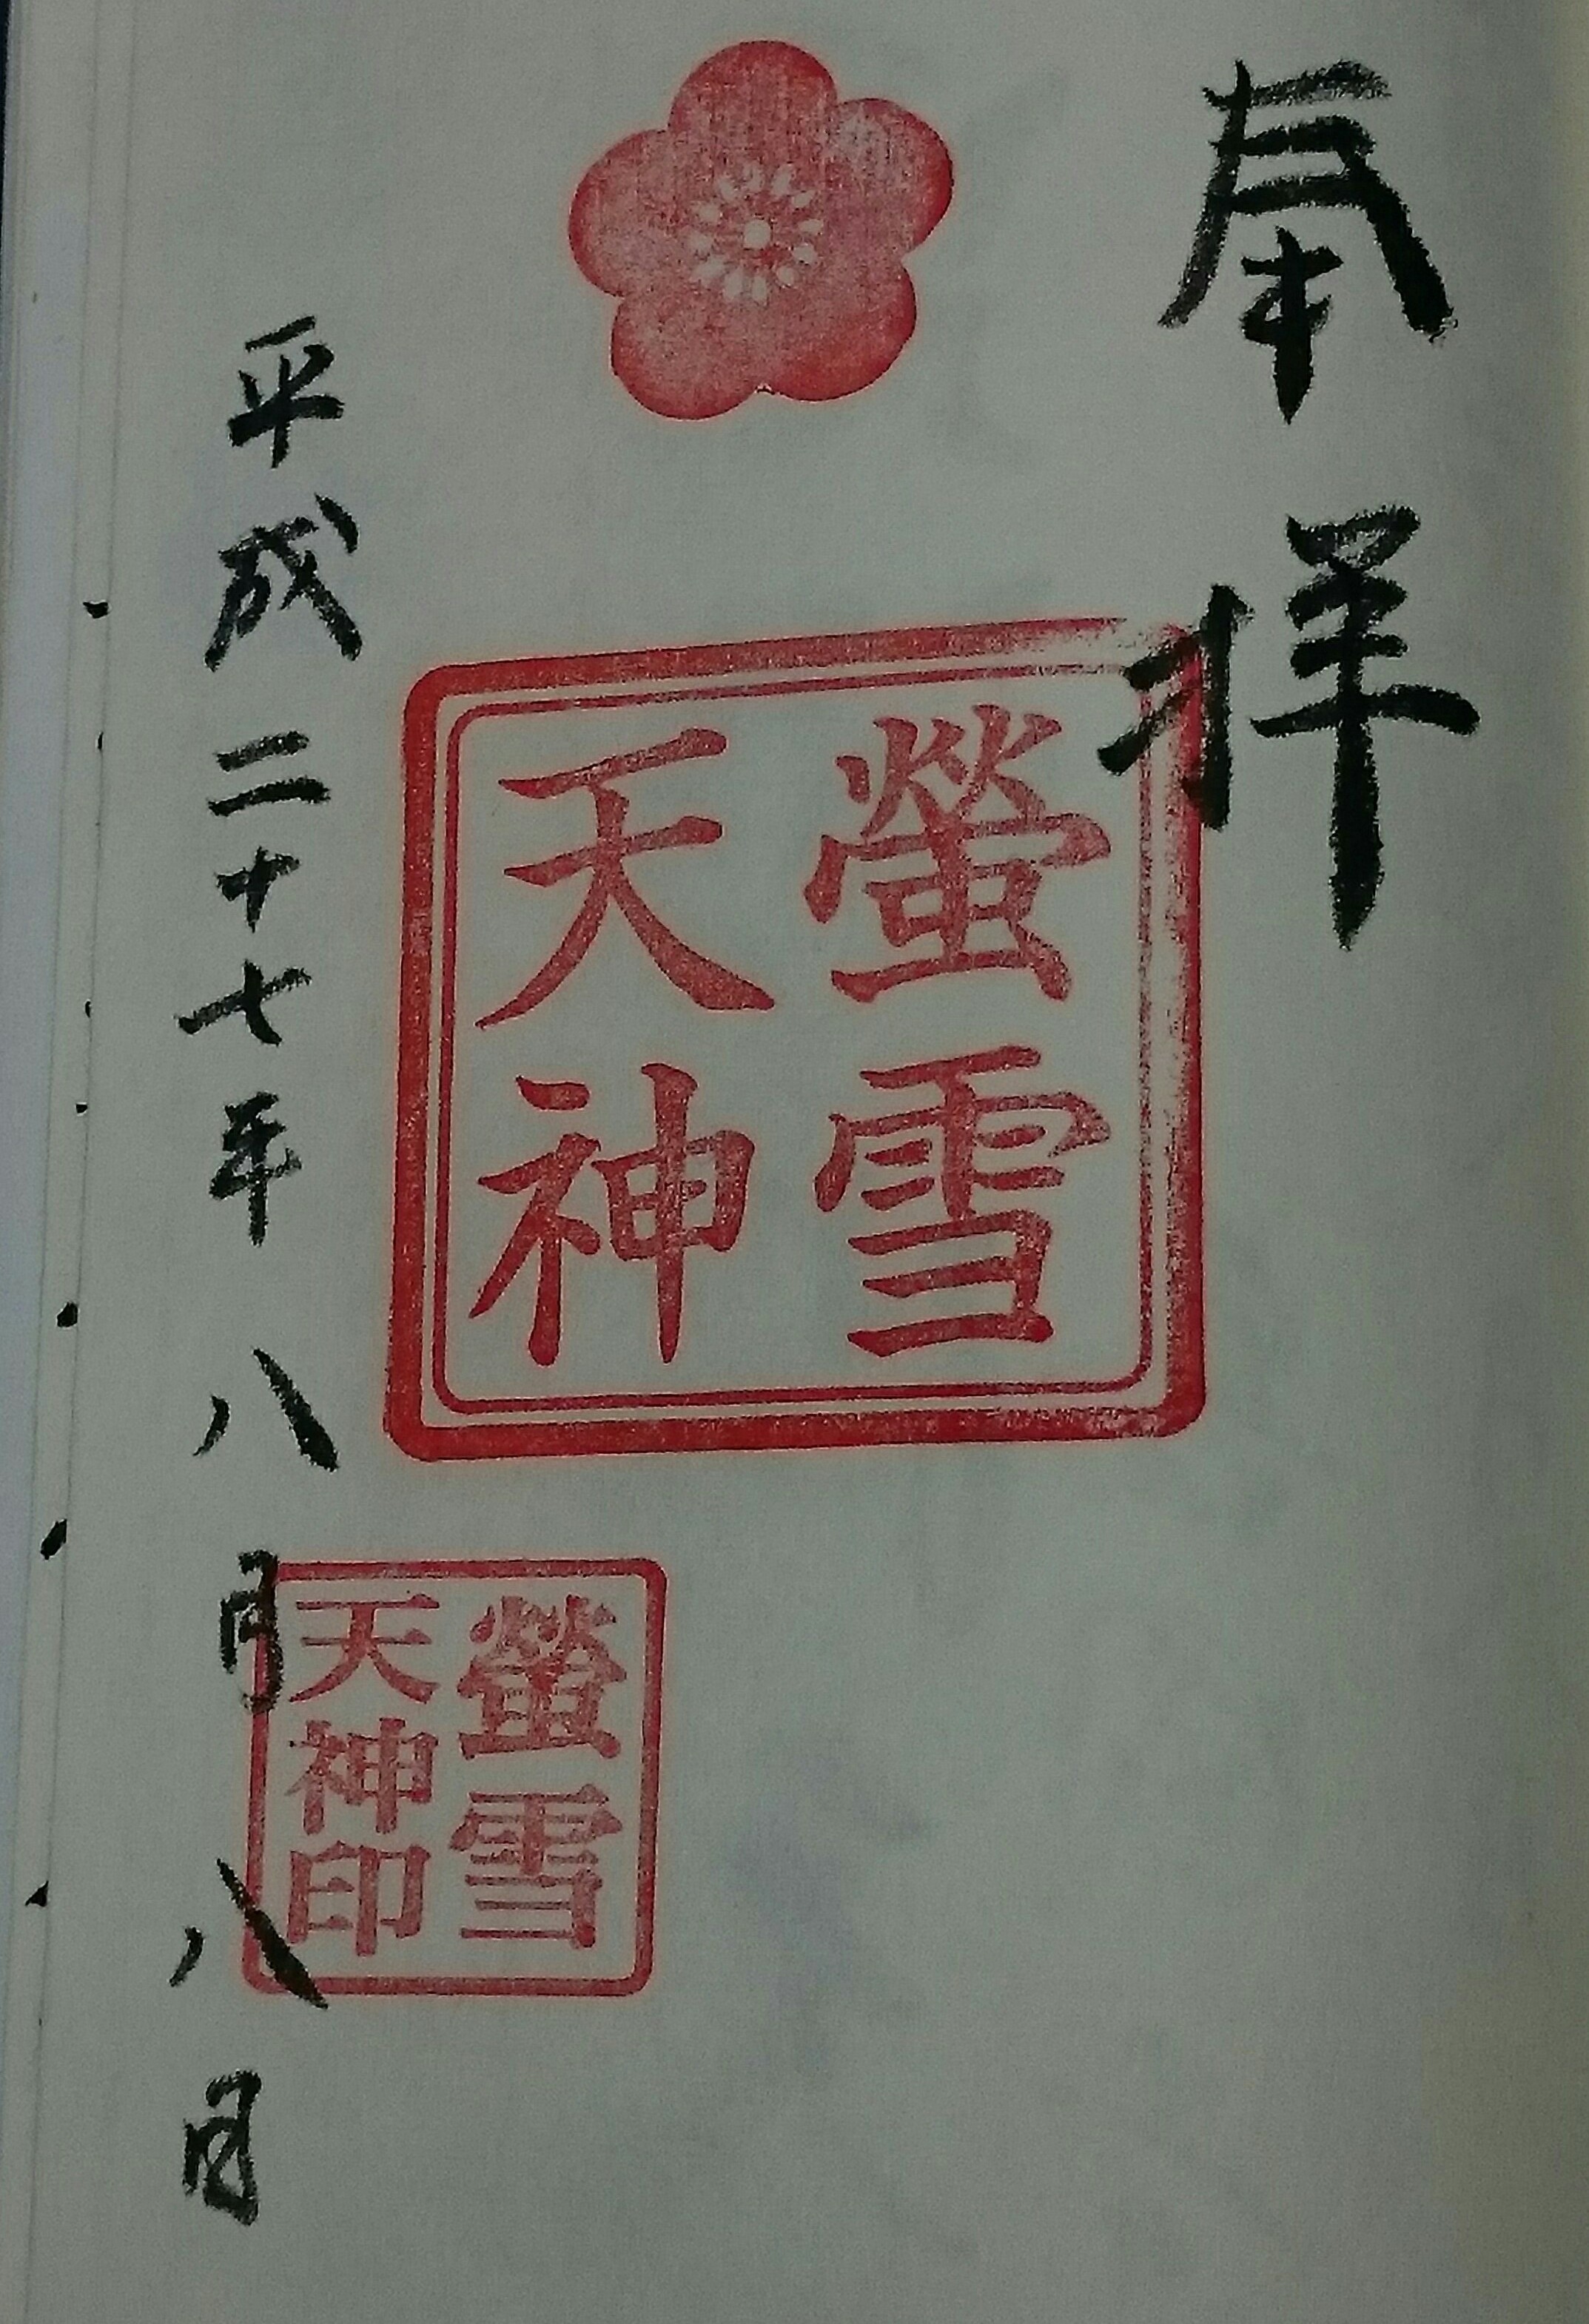 奉拝
螢雪
天神
螢雪
天神印
平成二十七年八月八日